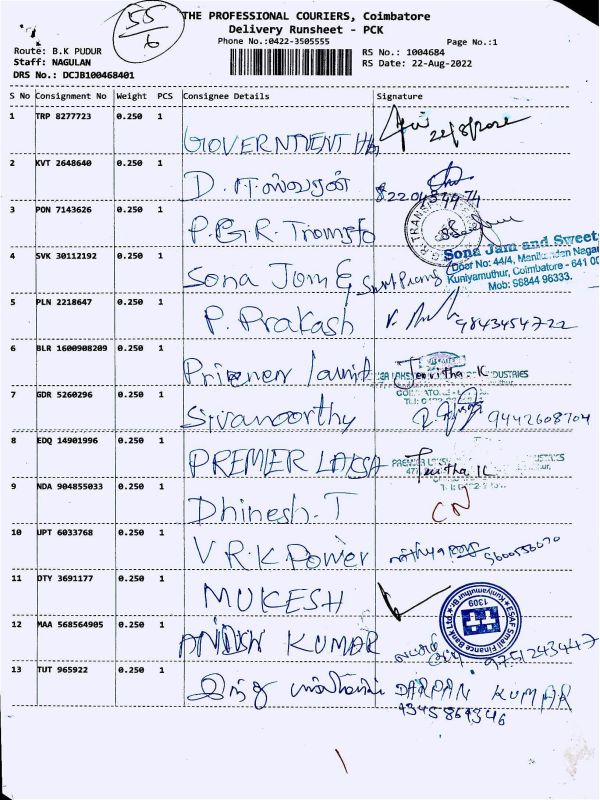 55
6
THE PROFESSIONAL COURIERS, Coimbatore
Delivery Runsheet - PCK
Phone No.:0422-3505555
Page No.:1
Route: B.K PUDUR
Staff: NAGULAN
DRS No.: DCJB100468401
RS No.: 1004684
RS Date: 22-Aug-2022
S No Consignment No Weight PCS Consignee Details Signature
1 TRP 8277723 0.250 1
GOVERNMENT
22/8/2022
2 KVT 2648640 0.250 1
D. ஈஸ்வரன்
3 PON 7143626 0.250 1
P.G.R.
4 SVK 30112192 0.250 1
Sona Jam &
Sona Jam and Sweets
Door No: 44/4, Manikandan Nagar
Kuniyamuthur, Coimbatore - 641 00
Mob: 98844 96333.
5 PLN 2218647 0.250 1
P. Prakash
9843454722
6 BLR 1600908209 0.250 1
7 GDR 5260296 0.250 1
Sivamoorthy
9442608704
8 EDQ 14901996 0.250 1
PREMIER LAKSA
9 NDA 904855033 0.250 1
Dhinesh.T
CN
10 UPT 6033768 0.250 1
V R.K Power
11 DTY 3691177 0.250 1
MUKESH
12 MAA 568564905 0.250 1
KUMAR
ESAF Small Finance Bank
Kuniyamuthur Br.
1309
9751243447
13 TUT 965922 0.250 1
இந்து
DARPAN KUMAR